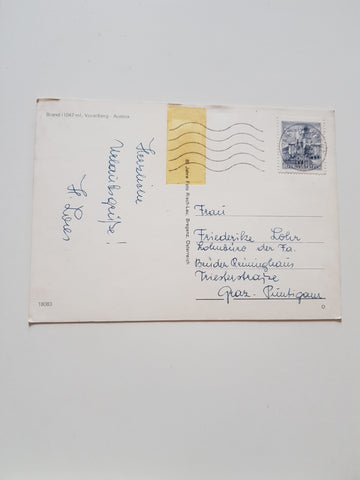 Brand (1047 m), Vorarlberg - Austria
Herzliche
Urlaubsgrüße!
85 Jahre Foto Risch-Lau, Bregenz, Österreich
Frau
Friederike Lohr
Lohnbüro der Fa.
Brüder Reininghaus
Triesterstraße
Graz - Puntigam
18083